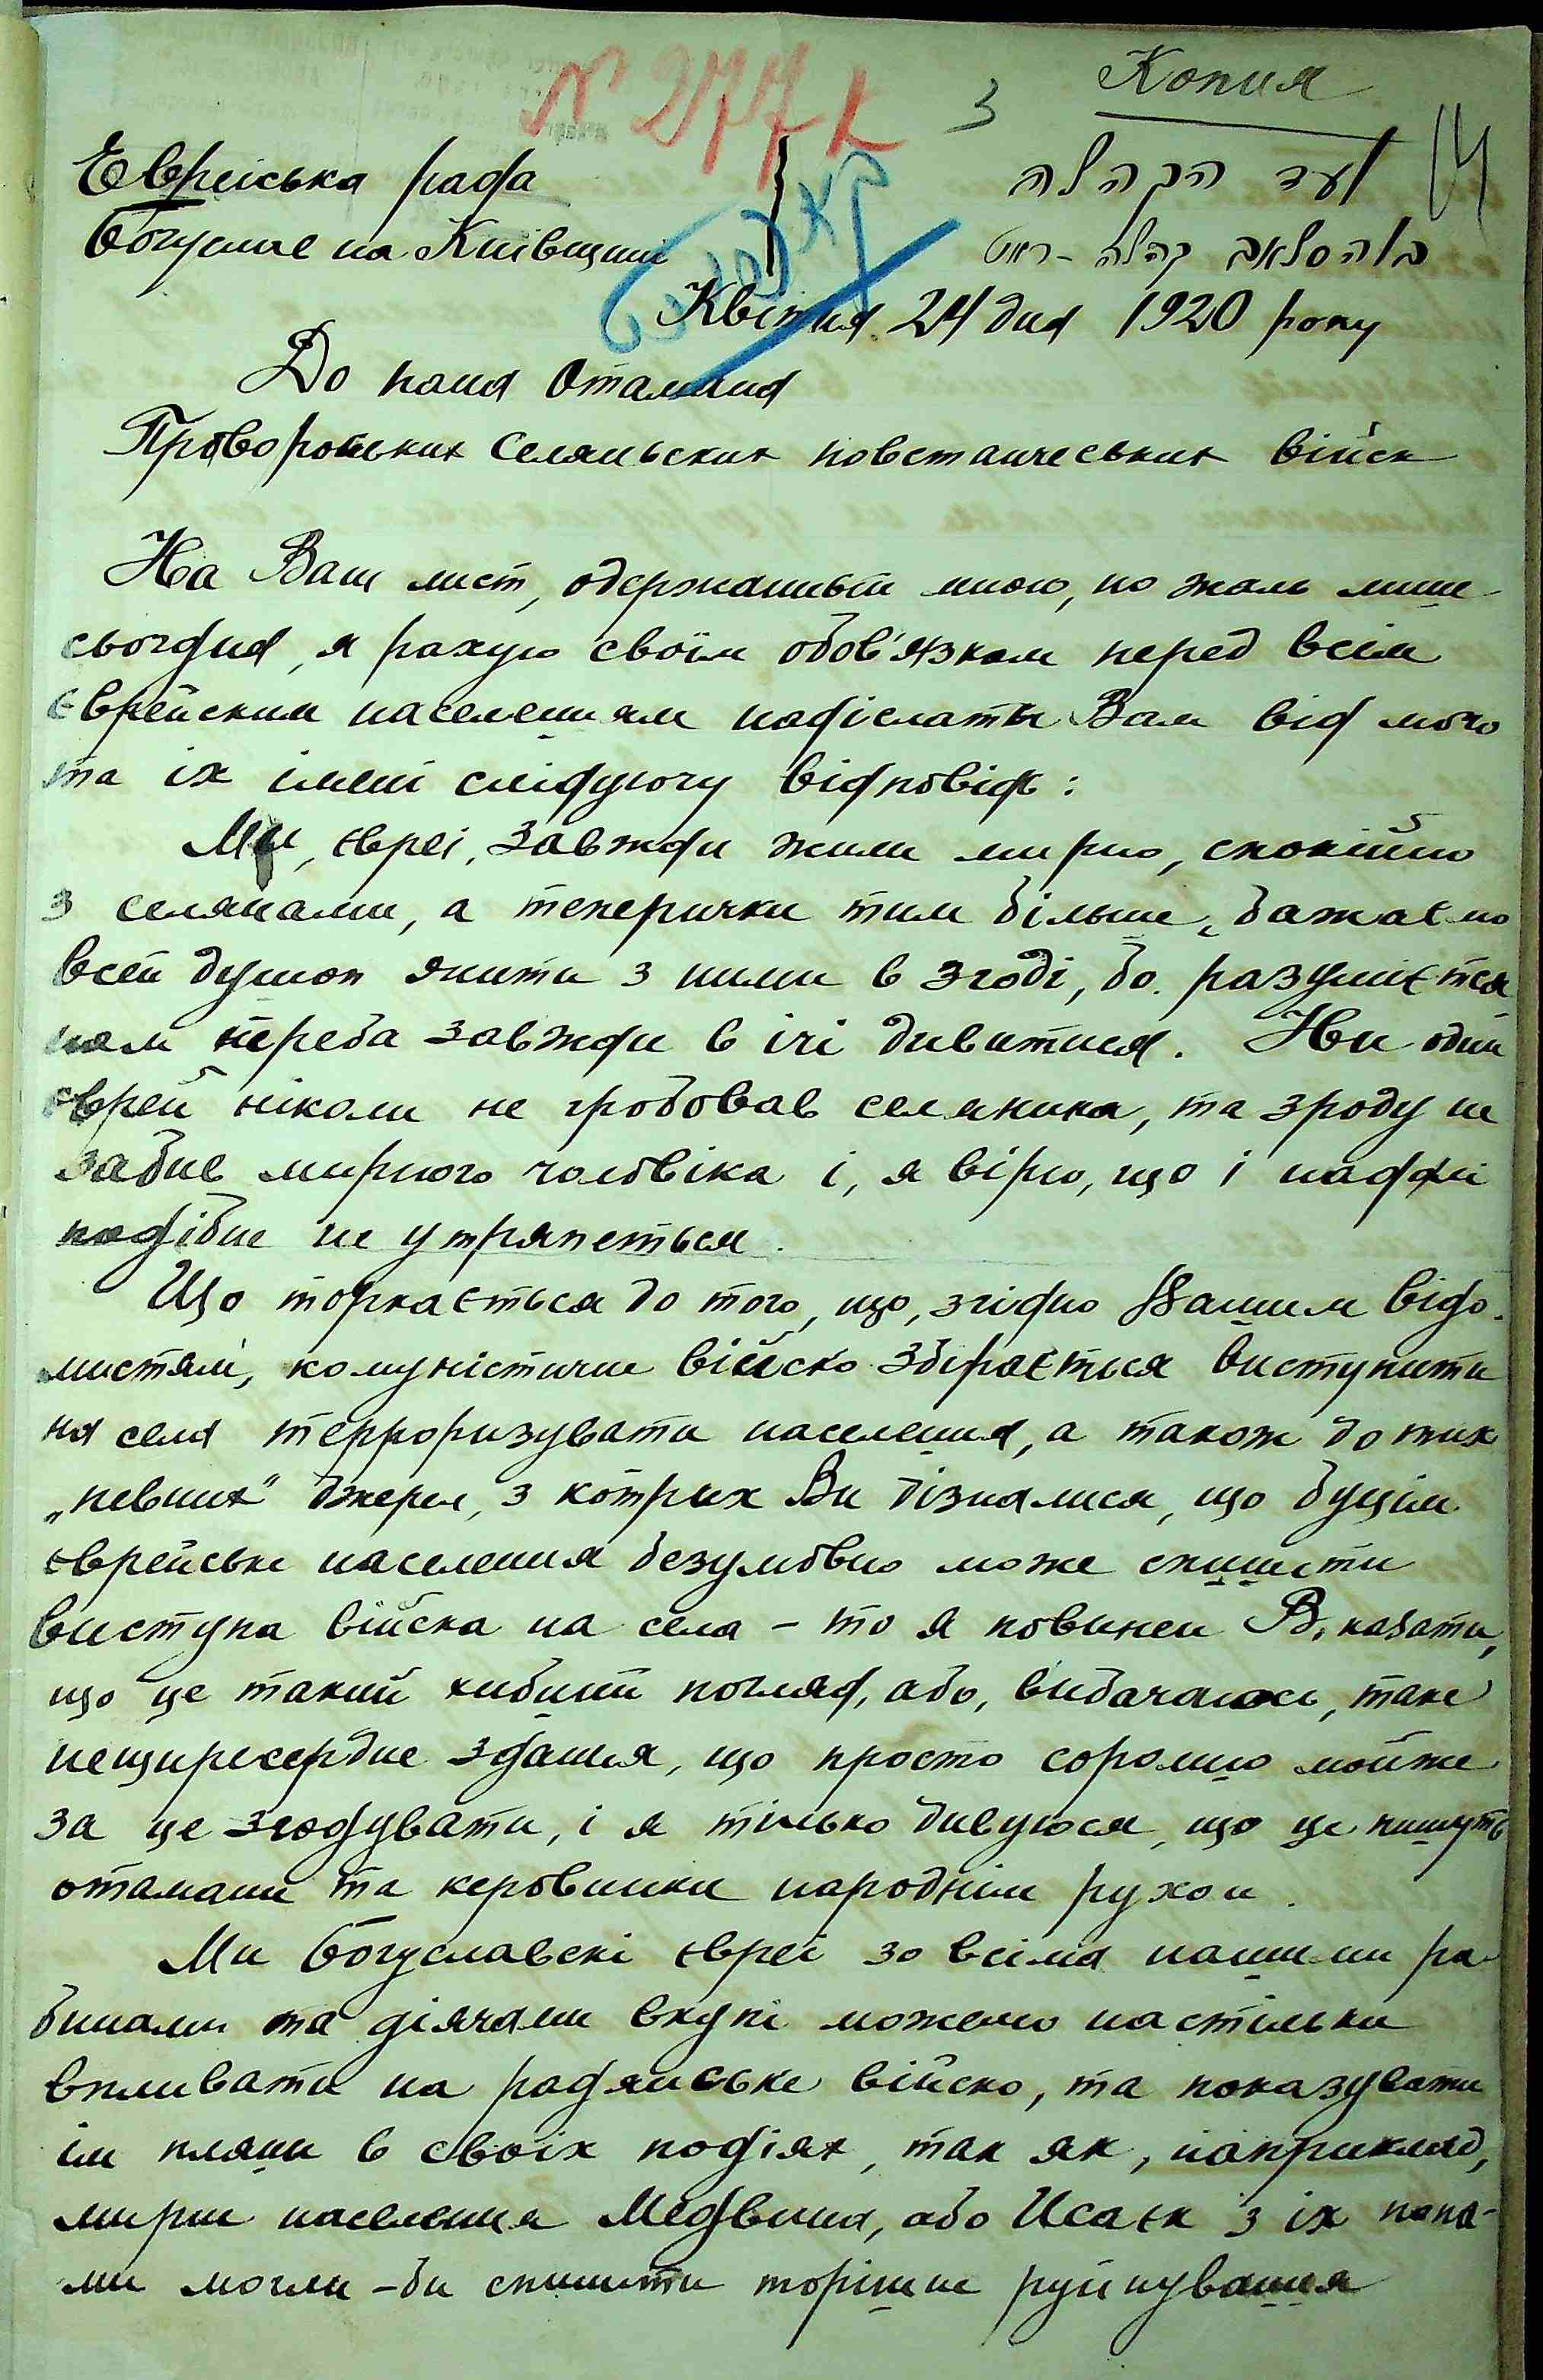 N 277 к
3
Копия
14
Еврейська рада
Богуслав на Київщині
ועד הקהלה
בוהסלאב קהלה - ראט
Квітня 24 дня 1920 року
До пана Отамана
Селяньских повстанчеських війск
На Ваш лист, одержанный мною, на жаль лише
сьогдня, я рахую своїм обов'язком перед всім
єврейским населенням надіслати Вам від мого
та іх імені слідуючу відповідь:
Ми, євреі, завжди жили мирно, спокійно
з селянами, а теперички тим більше, бажаємо
всей душою жити з ними в згоді, бо разуміється
нам треба завжди в ічі дивитися. Ни один
єврей ніколи не грабовав селяника, та зроду не
забив мирного чоловіка і, я вірю, що і надалі
подібне не утряпеться.
Що торкається до того, що, згідно Вашим відо-
мостям, комуністичне війско збирається виступити
на села терроризувати населення, а також до тих
„певних" джерел, з котрых Ви дізналися, що буцім
єврейське населення безумовно може спинити
виступа війска на села - то я повинен В. казати,
що це такий хибний погляд, або, вибачаюсь, таке
нещиресердне здання, що просто соромно майже
за це згадувати, і я тілько дивуюся, що це пишуть
отамани та керовники народнім рухом.
Ми богуславскі євреі зо всіма нашими ра-
бинами та діячами вкупі можемо настільки
впливати на радянське війско, та показувати
ім пляни в своіх подіях, так як, наприклад,
мирне населення Медвина, або Исаєк з іх попа-
ми могли-би спинити торішне руйнування